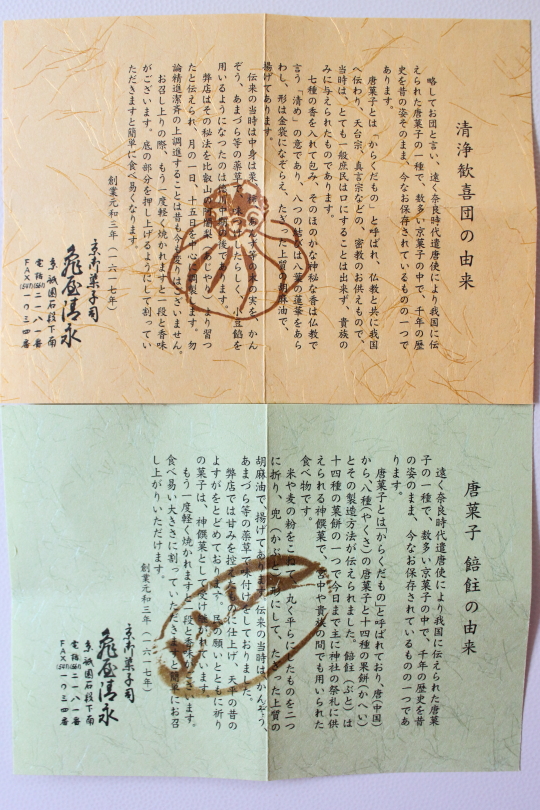 清浄歓喜団の由来
略してお団と言い、遠く奈良時代遣唐使により我国に伝
えられた唐菓子の一種で、数多い京菓子の中で、千年の歴
史を昔の姿そのまま、今なお保存されているものの一つで
あります。
唐菓子とは「からくだもの」と呼ばれ、仏教と共に我国
へ伝わり、天台宗、真言宗などの、密教のお供えもので、
当時は、とても一般庶民は口にすることは出来ず、貴族の
みに与えられたものであります。
七種の香を入れて包み、そのほのかな神秘な香は仏教で
言う「清め」の意であり、八つの結びは八葉の蓮華をあら
わし、形は金袋になぞらえ、たぎった上質の胡麻油で、
揚げてあります。
伝来の当時は中身は栗、柿、あんず等の木の実を、かん
ぞう、あまづら等の薬草で味つけしたらしく、小豆餡を
用いるようになったのは徳川中期以後であります。
弊店はその秘法を比叡山の阿闍梨(あじゃり)より習っ
たと伝えられ、月の一日、十五日を中心に調製します。勿
論精進潔斉の上調進することは昔も今も変りはございません。
お召し上りの際、もう一度軽く焼かれますと一段と香味
がございます。底の部分を押し上げるようにして割ってい
ただきますと簡単に食べ易くなります。
創業元和三年(一六一七年)
京御菓子司
亀屋清永
京祇園石段下南
電話(561)二一八一番
FAX(541)一〇三四番
唐菓子 餢飳の由来
遠く奈良時代遣唐使により我国に伝えられた唐菓
子の一種で、数多い京菓子の中で、千年の歴史を昔
の姿のまま、今なお保存されているものの一つであ
ります。
唐菓子とは「からくだもの」と呼ばれており、唐(中国)
から、八種(やくさ)の唐菓子と十四種の果餅(かへい)
とその製造方法が伝えられました。餢飳(ぶと)は
十四種の果餅の一つで今日まで主に神社の祭礼に供
えられる神饌菓で、宮中や貴族の間でも用いられた
食べ物です。
米や麦の粉をこねて、丸く平らにしたものを二つ
に折り、兜(かぶと)の形にして、たぎった上質の
胡麻油で、揚げてあります。伝来の当時は、かんぞう、
あまづら等の薬草で味付けをしておりました。
弊店では甘みを控えたものに仕上げ、天平の昔の
よすがをとどめております。民の願いとともに祈り
の菓子は、神饌菓として受け継がれています。
もう一度軽く焼かれますと一段と香味がございます。
食べ易い大きさに割っていただきますと簡単にお召
し上がりいただけます。
創業元和三年(一六一七年)
京御菓子司
亀屋清永
京祇園石段下南
電話(561)二一八一番
FAX(541)一〇三四番